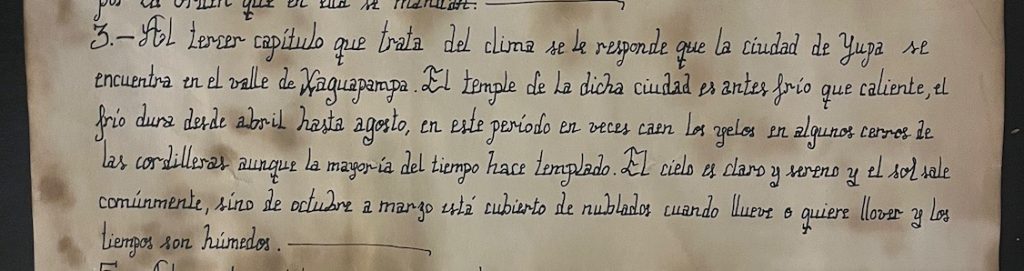 por la orden que en ella se mandan.
3.- Al tercer capítulo que trata del clima se le responde que la ciudad de Yupa se
encuentra en el valle de Xaguapampa. El temple de la dicha ciudad es antes frío que caliente, el
frío dura desde abril hasta agosto, en este período en veces caen los yelos en algunos cerros de
las cordilleras aunque la mayoría del tiempo hace templado. El cielo es claro y sereno y el sol sale
comúnmente, sino de octubre a marzo está cubierto de nublados cuando llueve o quiere llover y los
tiempos son húmedos.